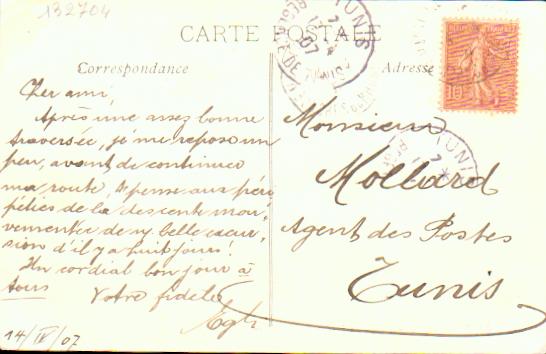 132704
CARTE POSTALE
Correspondance
Adresse
Cher ami,
Après une assez bonne
traversée, je me repose un
peu, avant de continuer
ma route, & pense aux péri-
péties de la descente mou-
vementée de n/ belle excur-
sion d'il y a huit jours!
Un cordial bon jour à
tous
Votre fidèle
14/IV/07
Monsieur
Mollard
Agent des Postes
Tunis
TUNIS
TUNIS
10